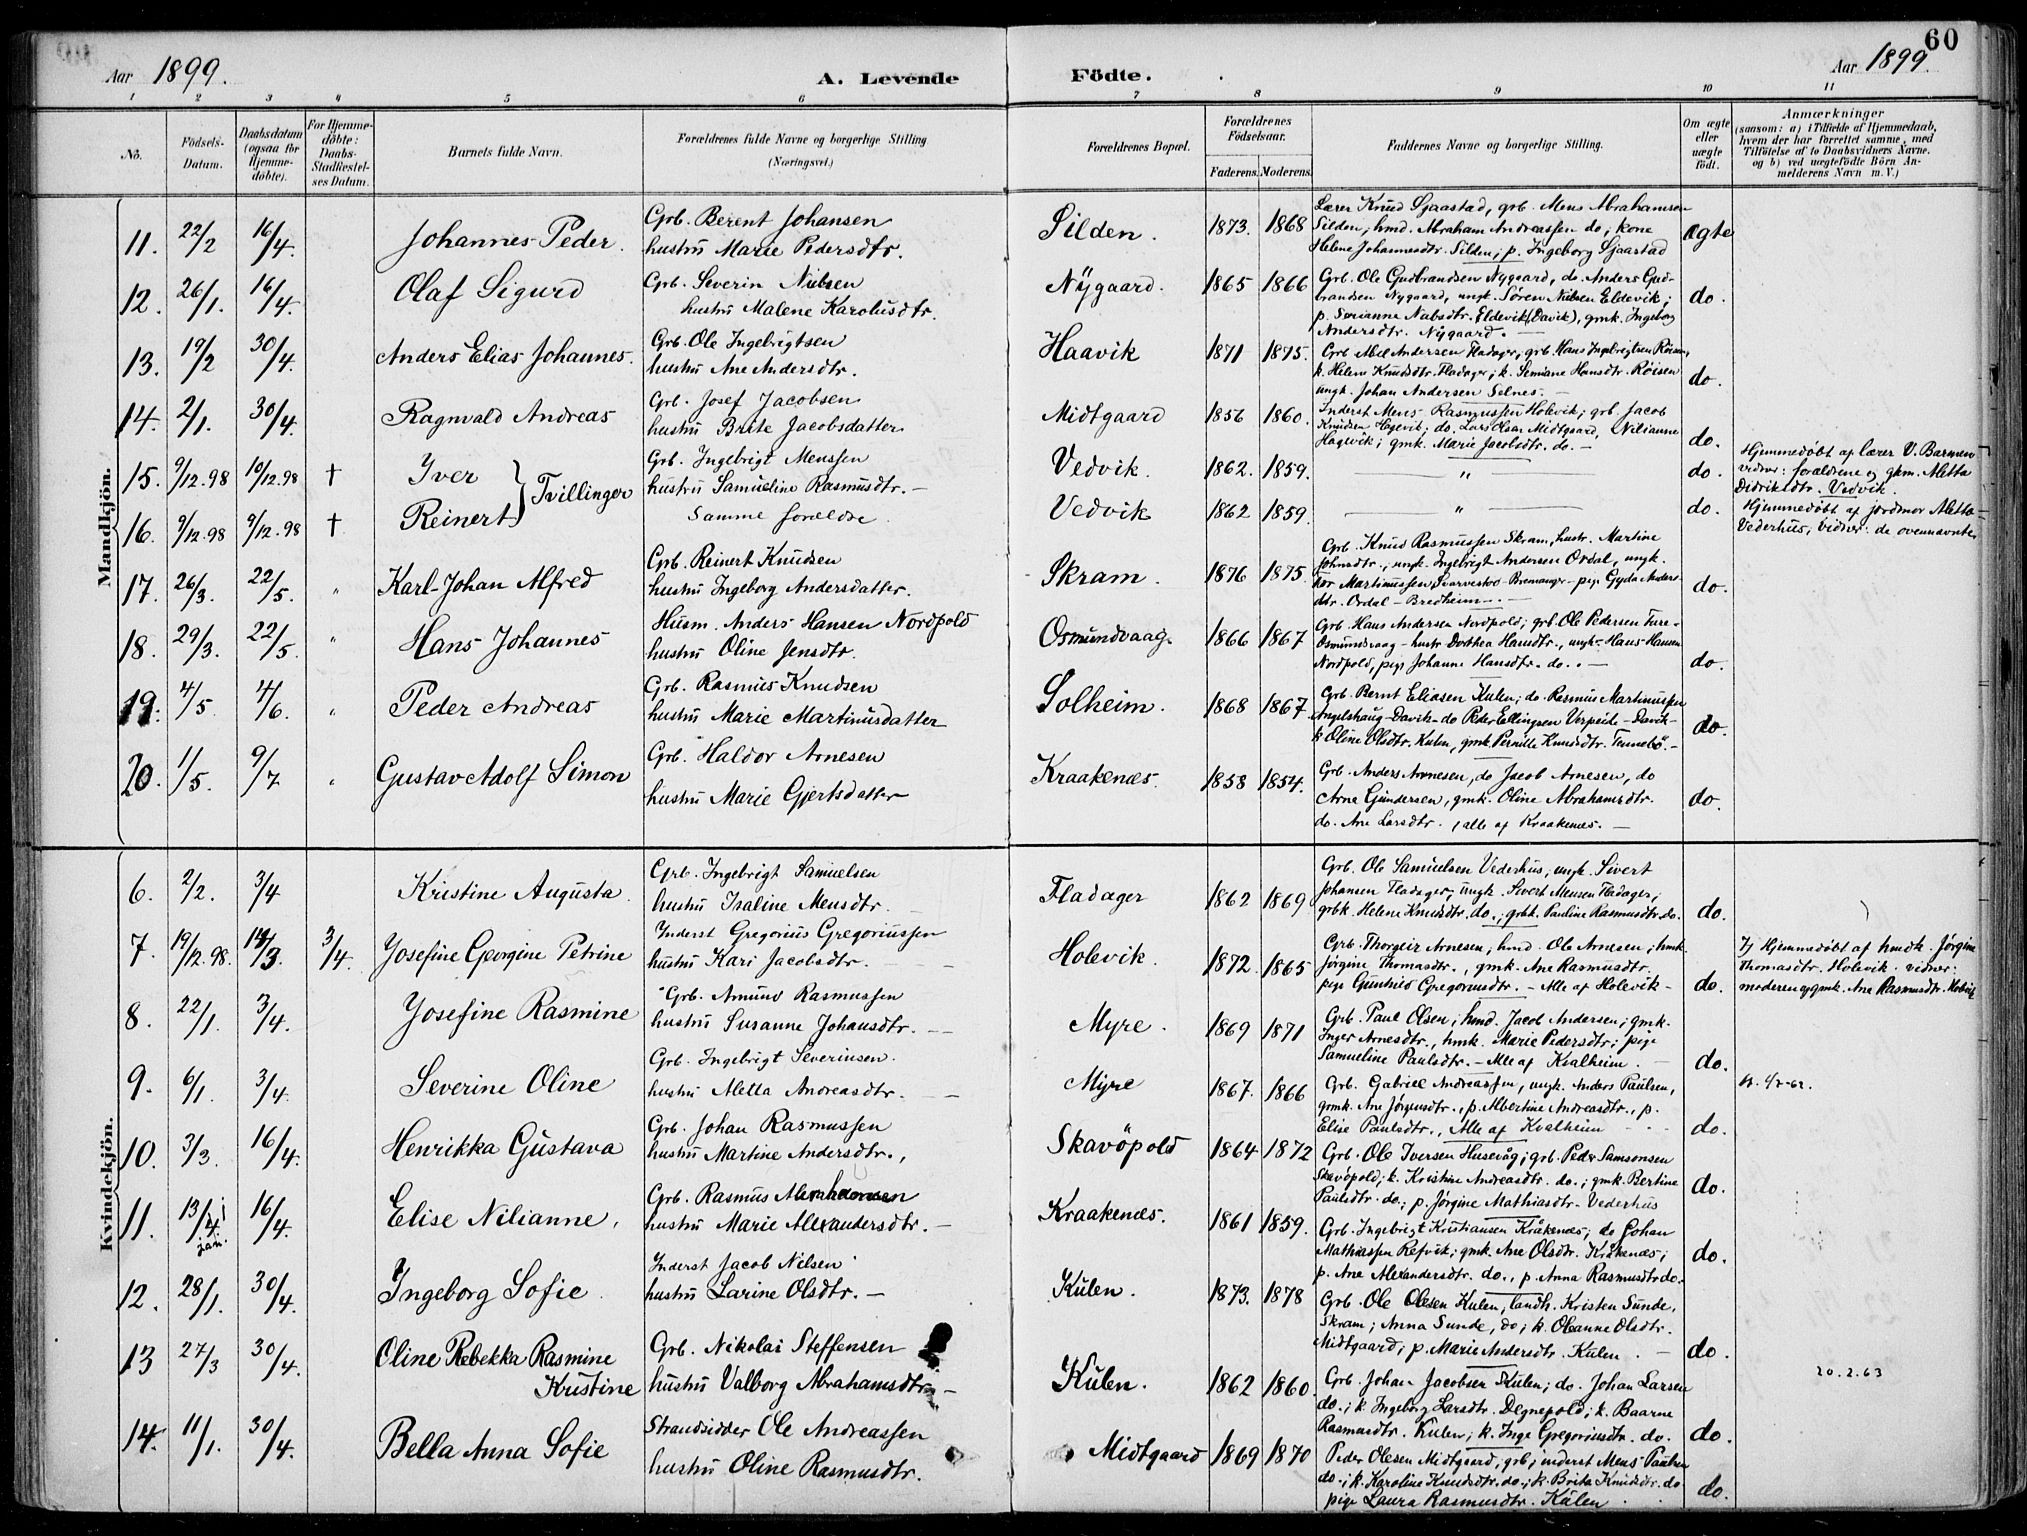 60
Aar 1899.
A. Levende Födte.
Aar 1899.
1 2 3 4 5 6 7 8 9 10 11
No.
Födsels-Datum.
Daabsdatum (ogsaa for Hjemme-döbte).
For Hjemme-döbte: Daabs-Stadfæstel-ses Datum.
Barnets fulde Navn.
Forældrenes fulde Navne og borgerlige Stilling (Næringsvei.)
Forældrenes Bopæl.
Forældrenes Födselsaar.
Faderens. Moderens.
Faddernes Navne og borgerlige Stilling.
Om ægte eller uægte födt.
Anmærkninger
(saasom: a) i Tilfælde af Hjemmedaab, hvem der har forrettet samme, med Tilföielse af to Daabsvidners Navne, og b) ved uægtefödte Börn An-melderens Navn m. V.)
Mandkjön.
11. 22/2 16/4. Johannes Peder.
Grb. Berent Johansen
hustru Marie Pedersdtr.
Silden. 1873. 1868
Lærer Knud Sjaastad, grb. Mons Abrahamsen
Silden; hmd. Abraham Andreassen do; kone
Helene Johannesdtr. Silden; p. Ingeborg Sjaastad
ægte
12. 26/1. 16/4. Olaf Sigurd
Grb. Severin Nilsen
hustru Malene Karolusdtr.
Nÿgaard. 1865 1866
Grb. Ole Gudbrandsen Nygaard, do. Anders Gud-
brandsen Nygaard, ungk. Søren Nilsen Eldevik;
p. Serianne Nilsdtr. Eldevik (Davik), gmk. Ingeborg
Andersdtr. Nÿgaard. —
do.
13. 19/2 30/4. Anders Elias Johannes.
Grb. Ole Ingebrigtsen
hustru Ane Andersdtr.
Haavik 1871 1875.
Grb. Abel Andersen Fladager, grb. Hans Ingebrigtsen Röisen,
k. Helene Knudsdtr. Fladager; k. Hansdtr. Röisen
ungk. Johan Andersen Selnes. —
do.
14. 2/1. 30/4. Ragnvald Andreas
Grb. Josef Jacobsen
hustru Brite Jacobsdatter
Midtgaard 1856 1860.
Inderst Mens Rasmussen Holevik; grb. Jacob
Knudsen Hagevik; do. Lars Olsen Midtgaard, Nilianne
Hagevik; gmk. Marie Jacobsdtr. do. —
do.
15. 9/12.98 10/12.98 † Yver } Tvillinger
Grb. Ingebrigt Menssen
hustru Samueline Rasmusdtr. —
Vedvik. 1862. 1859.
— " —
do.
Hjemmedøbt af lærer V. Barmen
vidner: forældrene og gkm. Aletta
Didriksdtr. Vedvik.
16. 9/12.98 9/12.98 † Reinert
Samme forældre.
Vedvik 1862 1859.
— " —
do.
Hjemmedøbt af jordmor Aletta
Vederhus, vidner: de ovennævnte
17. 26/3. 22/5. " Karl-Johan Alfred
Grb. Reinert Knudsen
hustru Ingeborg Andersdatter.
Skram. 1876 1875.
Grb. Knud Rasmussen Skram, hustr. Martine
Johnsdtr., ungk. Ingebrigt Andersen Ordal, ungk.
Tor Martinussen, Svarvestvo - Bremanger - pige Gyda Anders-
dtr. Ordal - Bredheim. —
do.
18. 29/3. 22/5. " Hans Johannes
Husm. Anders Hansen Nordpold
hustru Oline Jensdtr.
Osmundvaag. 1866 1867
Grb. Hans Andersen Nordpold; grb. Ole Pedersen Ture-
Osmundsvaag - hustr. Dorthea Hansdtr., ungk. Hans Hansen
Nordpold, pige Johanne Hansdtr. do. —
do.
19. 4/5. 4/6. " Peder Andreas
Grb. Rasmus Knudsen
hustru Marie Martinusdatter
Solheim. 1868 1867
Grb. Bernt Eliasen Kulen; do Rasmus Martinussen
Angelshaug - Davik - do Peder Ellingsen Verpeide - Davik -
k Oline Olsdtr. Kulen, gmk. Pernille Knudsdtr. Tennebö. —
do.
20. 1/5. 9/7 " Gustav Adolf Simon
Grb. Haldor Arnesen
hustru Marie Gjertsdatter
Kraakenæs. 1858 1854.
Grb. Anders Arnesen, do Jacob Arnesen, do
Arne Gundersen, gmk. Oline Abrahamsdtr.
do. Ane Larsdtr. (alle af Kraakenæs. —
do.
Kvindekjön.
6. 2/2. 3/4 Kristine Augusta.
Grb. Ingebrigt Samuelsen
hustru Isaline Mensdtr. —
Fladager 1862 1869
Grb. Ole Samuelsen Vederhus, ungk. Sivert
Johansen Fladager, ungk. Sivert Mensen Fladager;
grbk. Helene Knudsdtr. do.; grbk. Pauline Rasmusdtr. do.
do.
7. 19/12.98. 14/3. 3/4. Josefine Georgine Petrine
Inderst Gregorius Gregoriussen
hustru Kari Jacobsdtr. —
Holevik. 1872. 1865
Grb. Thorgeir Arnesen; hmd. Ole Arnesen; hmk.
Jørgine Thomasdtr., gmk. Ane Rasmusdtr.
pige Gunhild Gregoriusdtr. - Alle af Holevik -
do.
7) Hjemmedøbt af hmdk. Jörgine
Thomasdtr. Holevik. vidner:
moderen og gmk. Ane Rasmusdtr. Holevik
8. 22/1. 3/4. Josefine Rasmine
Grb. Amund Rasmussen
hustru Susanne Johansdtr. —
Myre. 1869 1871
Grb. Paul Olsen; hmd. Jacob Andersen; gmk.
Inger Arnesdtr., hmk. Marie Pedersdtr; pige
Samueline Paulsdtr. - Alle af Kvalheim —
do.
9. 6/1. 3/4. Severine Oline
Grb. Ingebrigt Severinsen.
hustru Aletta Andreasdtr. —
Mÿre 1867. 1866
Grb. Gabriel Andreassen, ungk. Anders Paulsen,
gmk. Ane Jörgensdtr., p. Albertine Andreasdtr., p.
Elise Paulsdtr., Alle af Kvalheim - - -
do.
10. 3/3. 16/4. Henrikka Gustava
Grb. Johan Rasmussen
hustru Martine Andersdtr.,
Skavöpold 1864 1872
Grb. Ole Iversen Husevåg; grb. Peder Samsonsen
Skavöpold; k. Kristine Andreasdtr. do.; gmk. Bertine
Paulsdtr. do.; p. Jørgine Mathiasdtr. Vederhus
do.
11. 13/1 jan. 16/4. Elise Nilianne.
Grb. Rasmus Abrahamsen
hustru Marie Alexandersdtr. —
Kraakenæs. 1861 1859.
Grb. Ingebrigt Kristiansen Kråkenæs; do Johan
Mathiassen Refvik; gmk. Ane Olsdtr. Kråkenæs;
p. Ane Alexandersdtr. do., p. Anna Rasmusdtr do.
do.
12. 28/1. 30/4. Ingeborg Sofie.
Inderst Jacob Nilsen
hustru Larine Olsdtr. —
Kulen. 1873. 1878
Grb. Ole Olesen Kulen, landh. Kristen Sunde,
Skram; Anna Sunde, do; k. Oleanne Olsdtr.
Midtgaard; p. Marie Andersdtr. Kulen. —
do.
13 27/3 30/4. Oline Rebekka Rasmine
Kristine
Grb. Nikolai Steffensen
hustru Valborg Abrahamsdtr. —
Kulen. 1862 1860.
Grb. Johan Jacobsen Kulen; do. Johan Larsen
do.; k. Ingeborg Larsdtr. Degnepold; k. Baarne
Rasmusdtr. Kulen; k. Inge Gregoriusdtr. do.
do.
20.2.63
14. 11/1. 30/4. Bella Anna Sofie
Strandsidder Ole Andreassen
hustru Oline Rasmusdtr.
Midtgaard 1869 1870
Peder Olesen Midtgaard, grb; inderst Mens Paulsen
do.; k. Karoline Knudsdtr. do.; k. Brita Knudsdtr. do
pige Laura Rasmusdtr. Kulen.
do.